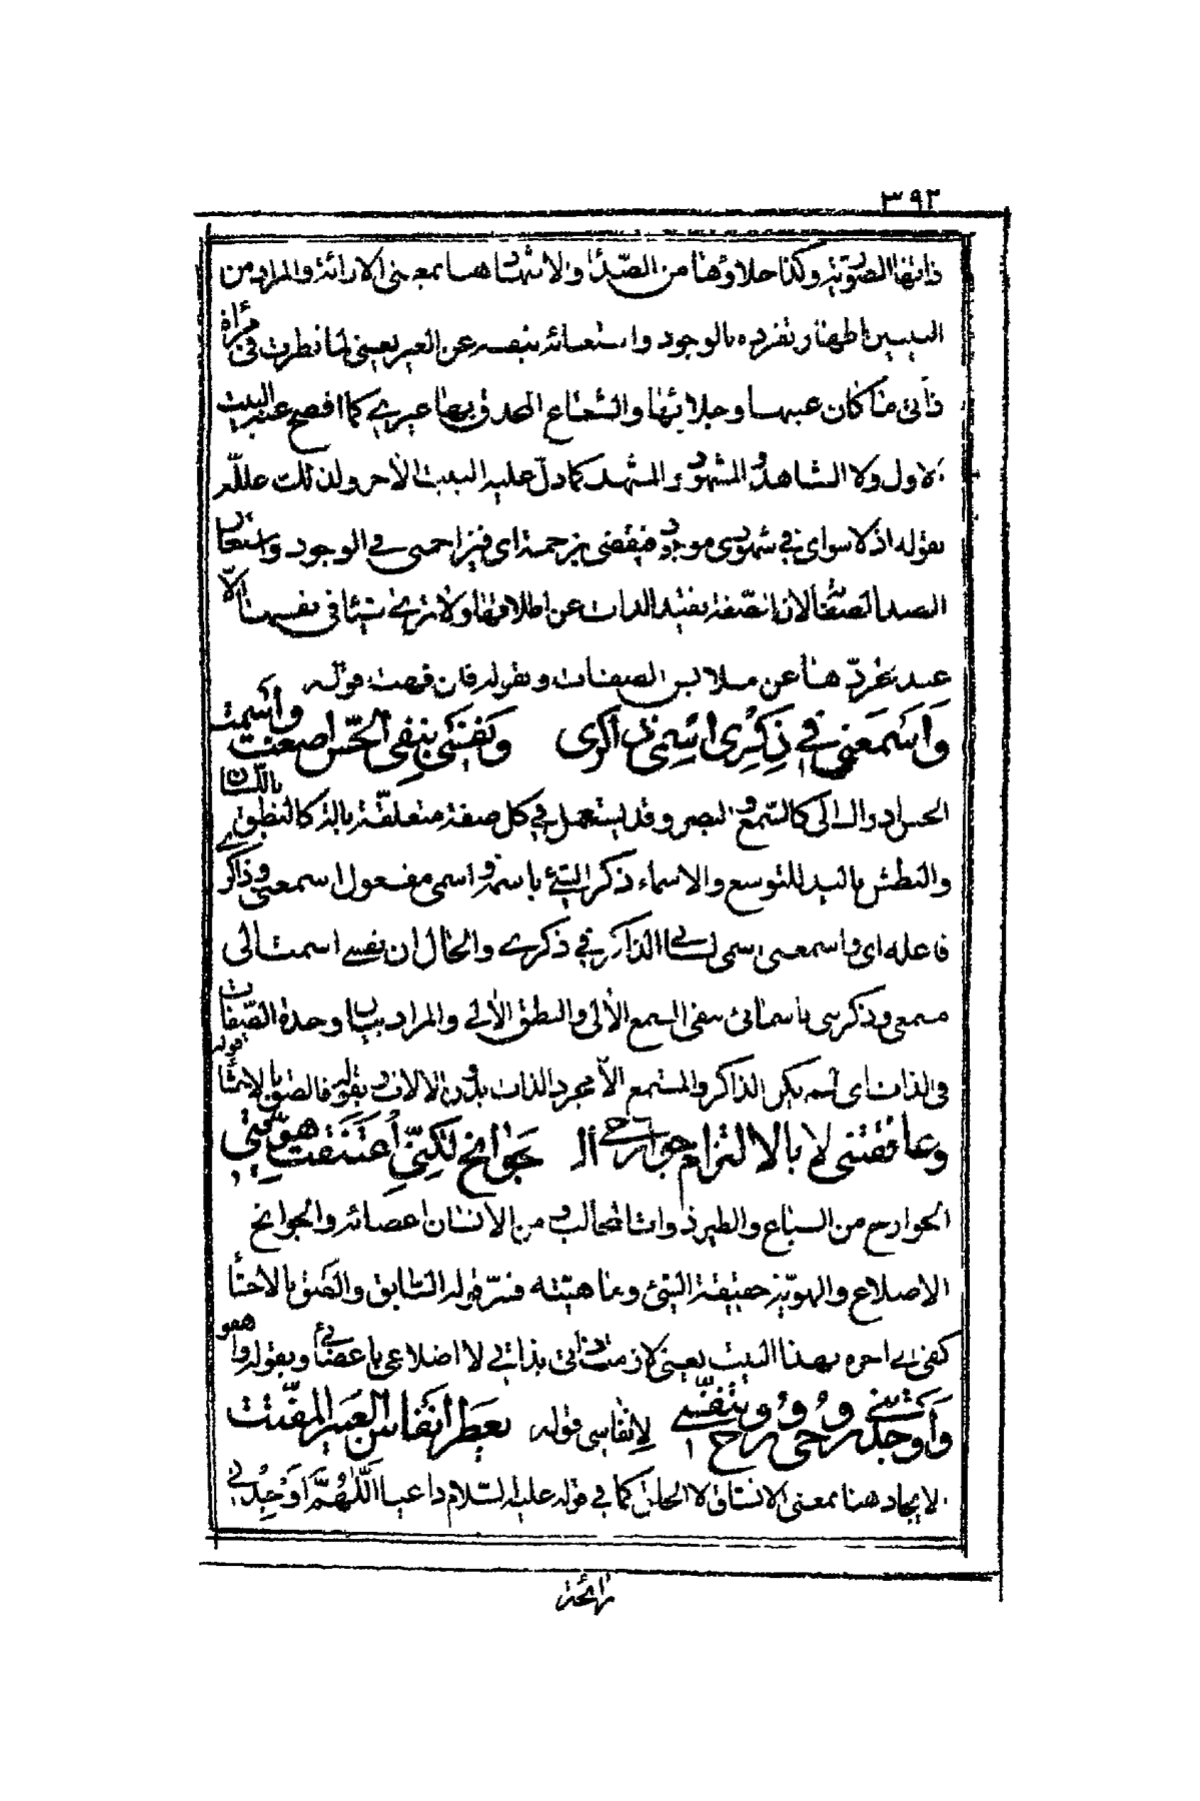 ٣٩٢
ذاتها الصوتية وكذا جلاؤها من الصدأ والاشهاد هنا بمعنى الاراءة والمراد من
البيتين اظهار تفرده بالوجود واستغنائه بنفسه عن الغير يعنى لما نظرت فى مرآة
ذاتى ما كان عينها وجلائها والشعاع المحدق بها غيرى كما افصح عنه البيت
الاول ولا الشاهد والمشهود والمشهد كما دل عليه البيت الآخر ولذلك علله
بقوله اذ لا سواى فى شهودى موجود فيقضى بزحمة اى فيزاحمنى فى الوجود
الصدأ للصفات لان الصفة تقيد الذات عن اطلاقها ولا ترى شيئا فى نفسها الا
عند تجردها عن ملابس الصفات وبقوله قوله
وَاَسْمَعَنى فى ذِكْرِى اسْمِىَ ذاكرى وَنَفْسىَ بنفى الحسّ اصغت واسمت
الحس ادراك كالسمع والبصر وقد يستعمل فى كل صفة متعلقة بآلة كالنطق باللسان
والبطش باليد للتوسع والاسماء ذكر الشئ باسمه واسمى مفعول اسمعنى وذاكرى
فاعله اى واسمعنى اسمى لسانى الذاكر فى ذكرى والحال ان نفسى اسمت الى
سمعى وذكرنى باسمائى بنفى السمع الآلى والنطق الآلى والمراد بيان وحدة الصفات
فى الذات اى لم يكن الذاكر والمستمع الا مجرد الذات بدون الآلات قوله
وعانقتنى لا بالتزام جوارحى الـ جَوانح لكِنّى اعْتَنَقت هويّتى
الجوارح من السباع والطير ذوات المخالب ومن الانسان اعضائه والجوانح
الاضلاع والهوية حقيقة الشئ وماهيته
كفى الى آخره بهذا البيت يعنى لازمت ذاتى بذاتى لا اضلاعى باعضائى وبقوله
وَاَوْجَدْتَنى رُوحى وروح تنفّسى لانفاسى قوله يعطّر اَنفاسَ العَبير المفتّت
الايجاد هنا بمعنى الانشاق لا الخلق كما فى قوله عليه السلام داعيا اَللّهُمَّ اَوْجِدْنى
رائحة